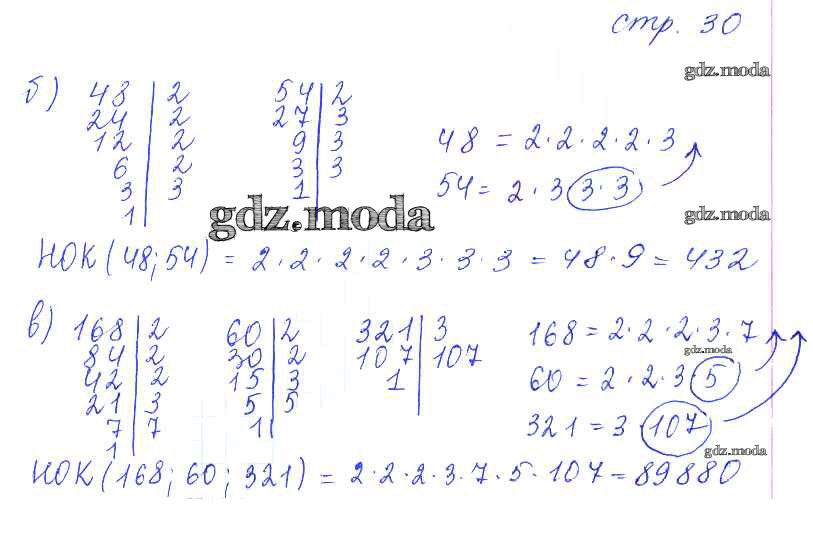 стр. 30
gdz.moda
б) 48 | 2 54 | 2
24 | 2 27 | 3
12 | 2 9 | 3
6 | 2 3 | 3
3 | 3 1
1
48 = 2·2·2·2·3
54 = 2·3·3·3
gdz.moda
gdz.moda
НОК (48; 54) = 2·2·2·2·3·3·3 = 48·9 = 432
в) 168 | 2 60 | 2 321 | 3
84 | 2 30 | 2 107 | 107
42 | 2 15 | 3 1
21 | 3 5 | 5
7 | 7 1
1
168 = 2·2·2·3·7
gdz.moda
60 = 2·2·3·5
321 = 3·107
gdz.moda
НОК (168; 60; 321) = 2·2·2·3·7·5·107 = 89880